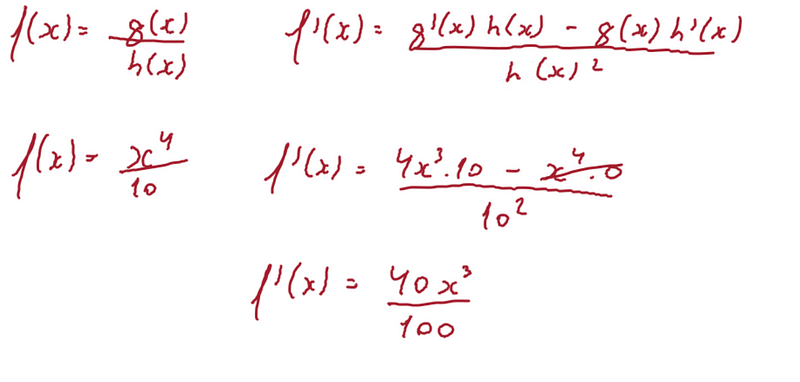 f(x) = g(x)/h(x) f'(x) = (g'(x) h(x) - g(x) h'(x))/h(x)²
f(x) = x⁴/10 f'(x) = (4x³·10 - x⁴·0)/10²
f'(x) = 40x³/100